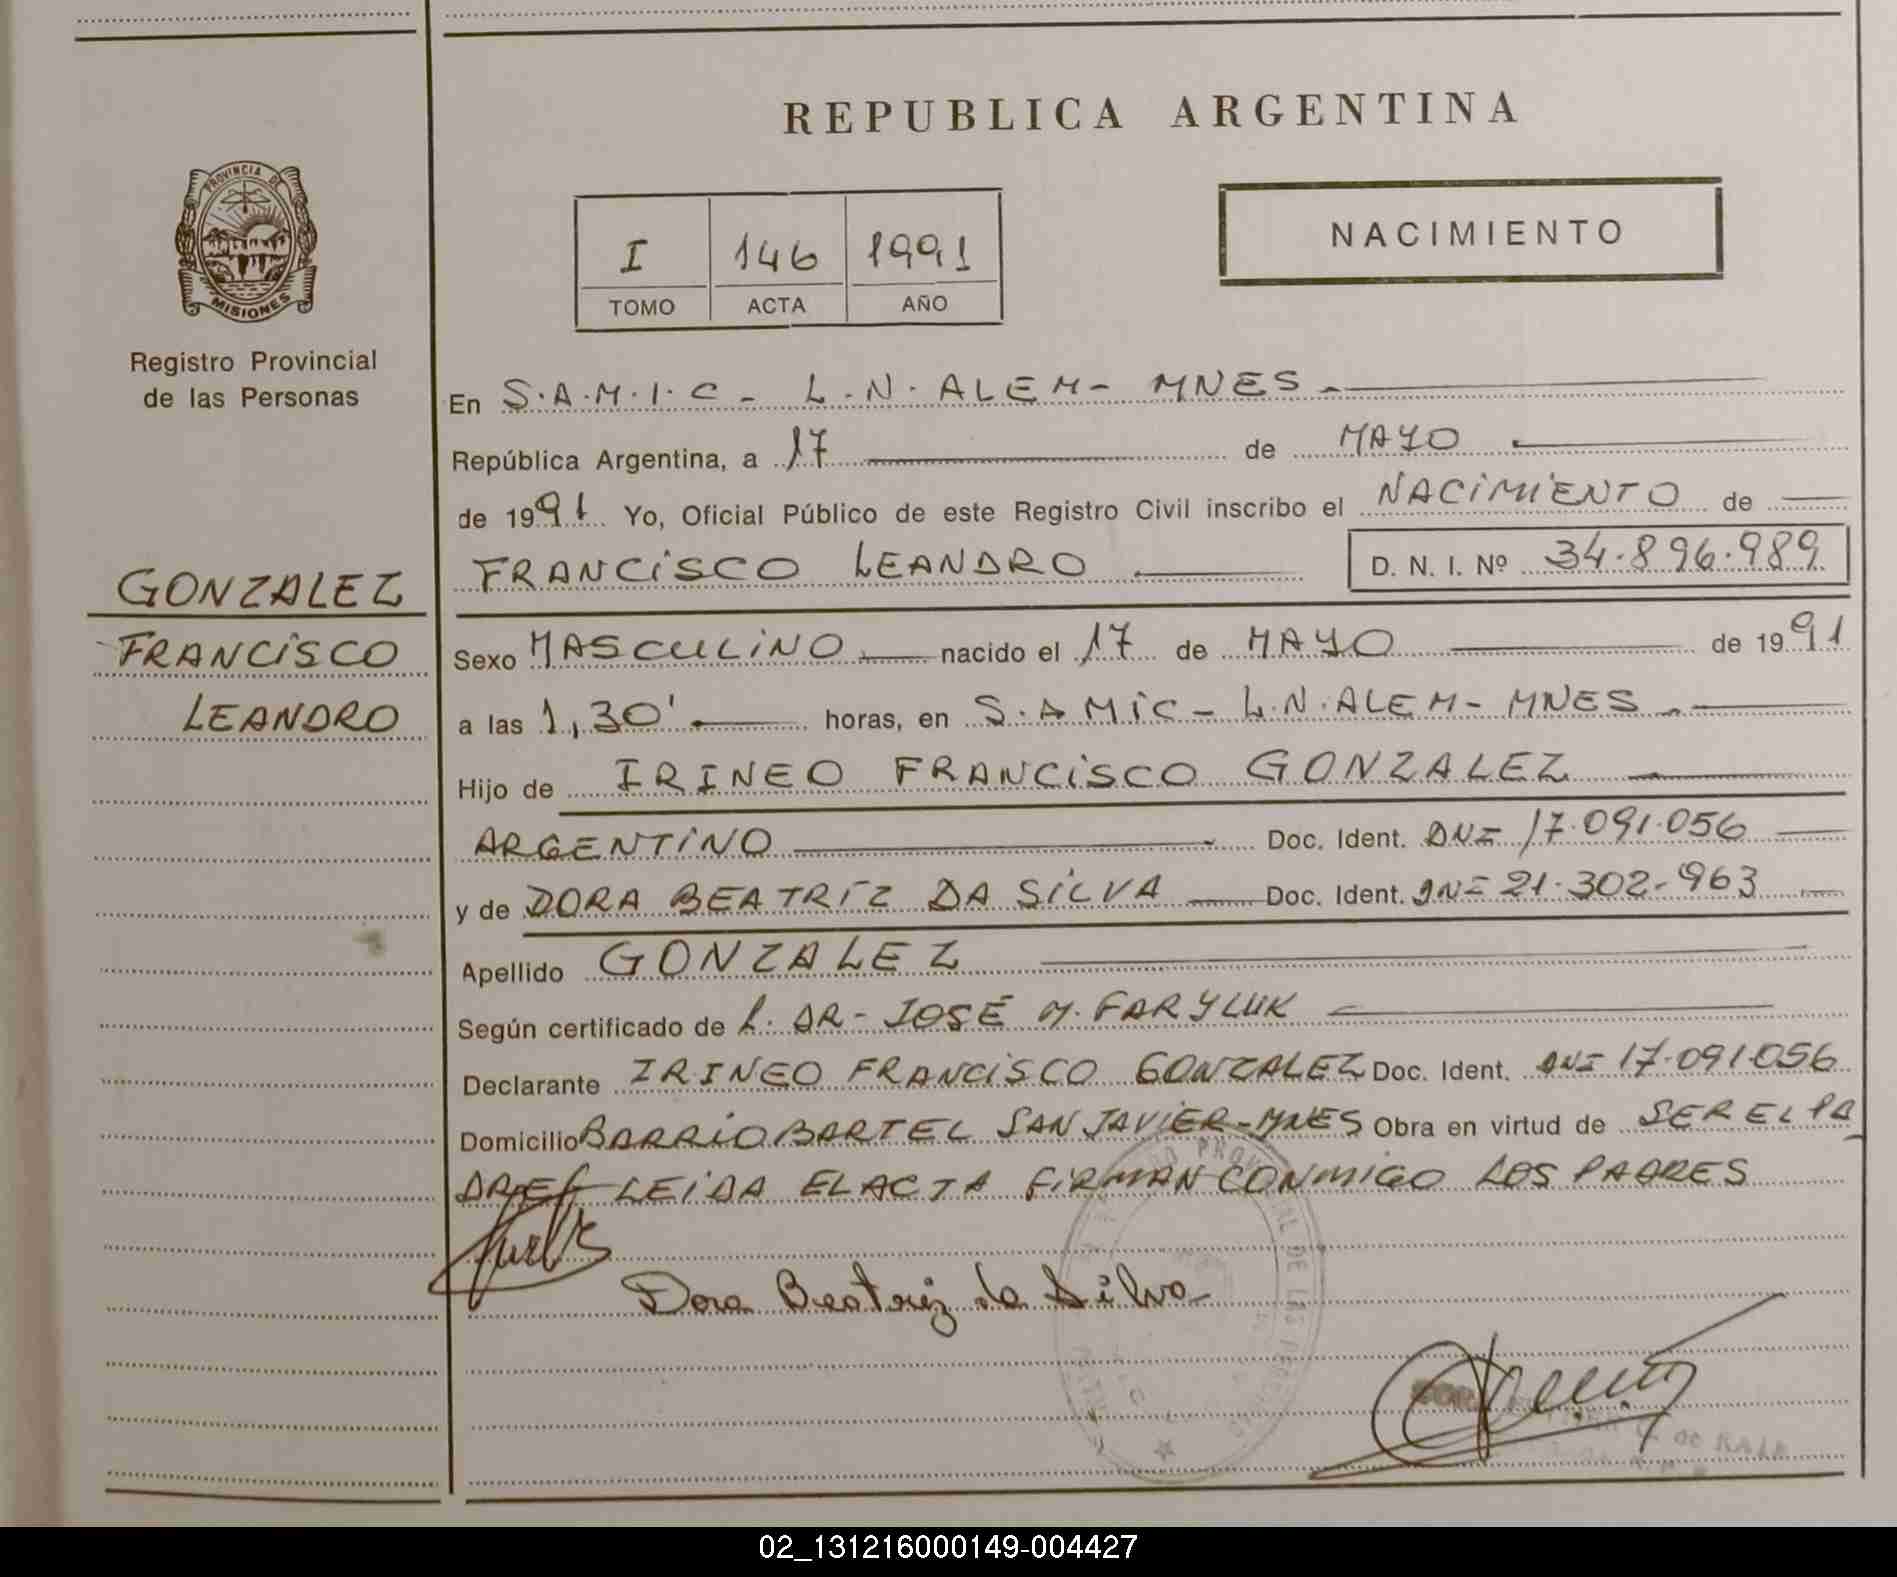 REPUBLICA ARGENTINA
PROVINCIA DE
MISIONES
Registro Provincial
de las Personas
NACIMIENTO
I 146 1991
TOMO ACTA AÑO
En S.A.M.I.C - L.N. ALEM - MNES -
República Argentina, a 17 de MAYO
de 1991 Yo, Oficial Público de este Registro Civil inscribo el NACIMIENTO de
FRANCISCO LEANDRO D. N. I. Nº 34.896.989
GONZALEZ
FRANCISCO
LEANDRO
Sexo MASCULINO nacido el 17 de MAYO de 1991
a las 1,30' horas, en S.AMIC - L.N.ALEM - MNES -
Hijo de IRINEO FRANCISCO GONZALEZ
ARGENTINO Doc. Ident. DNI 17.091.056
y de DORA BEATRIZ DA SILVA Doc. Ident. DNI 21.302.963
Apellido GONZALEZ
Según certificado de L. DR- JOSÉ M. FARYLUK
Declarante IRINEO FRANCISCO GONZALEZ Doc. Ident. DNI 17.091.056
Domicilio BARRIO BARTEL SAN JAVIER-MNES Obra en virtud de SER EL PA
DRE LEIDA EL ACTA FIRMAN CONMIGO LOS PADRES
Dora Beatriz da Silva
02_131216000149-004427